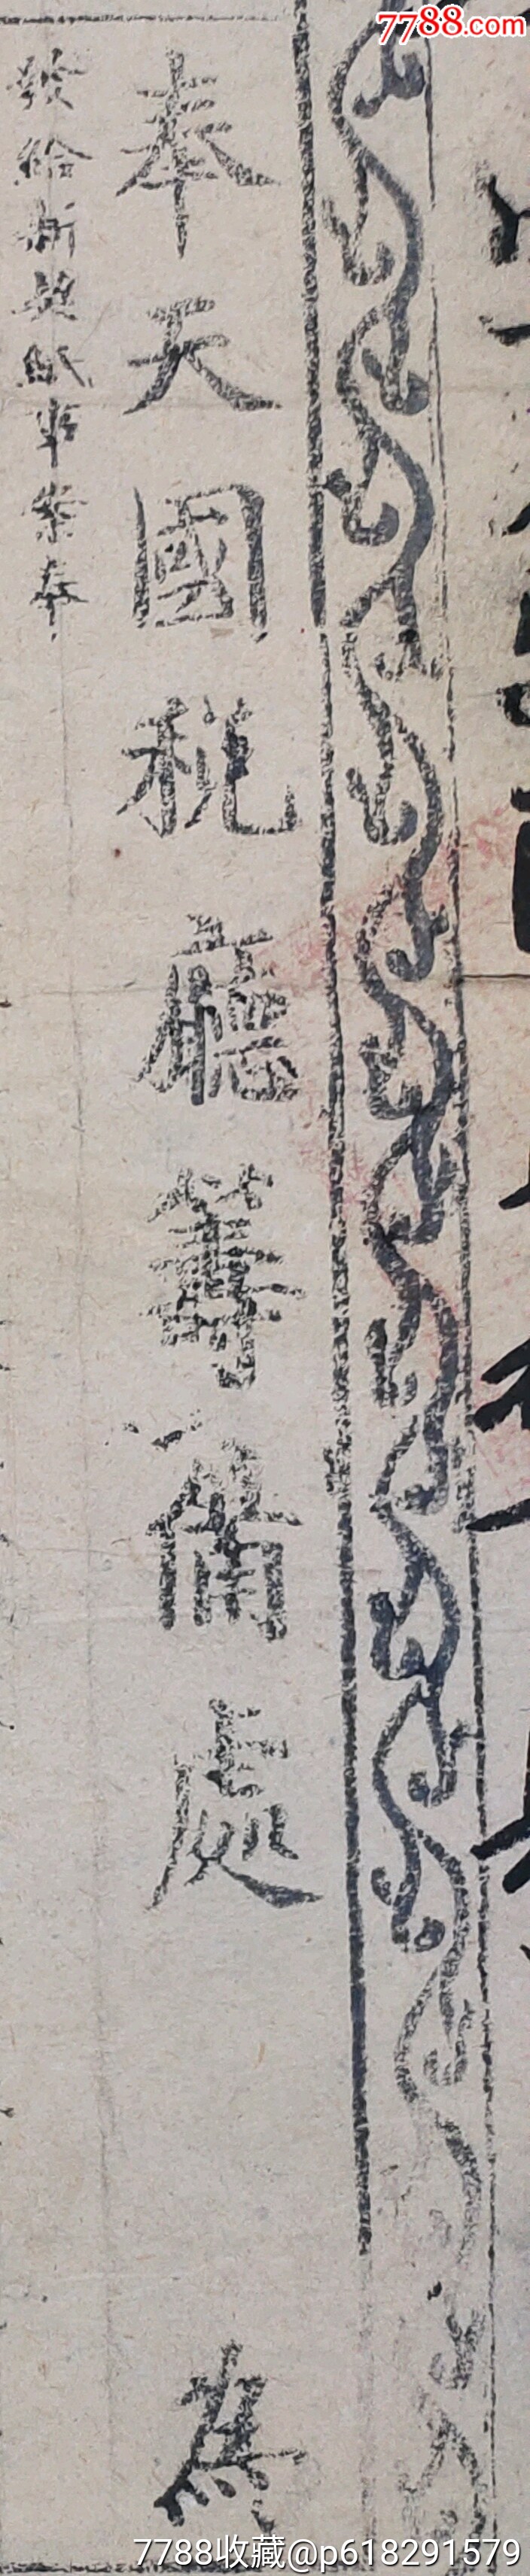 7788.com
奉天國稅廳籌備處　為
發給新契紙事案奉
7788收藏@p618291579